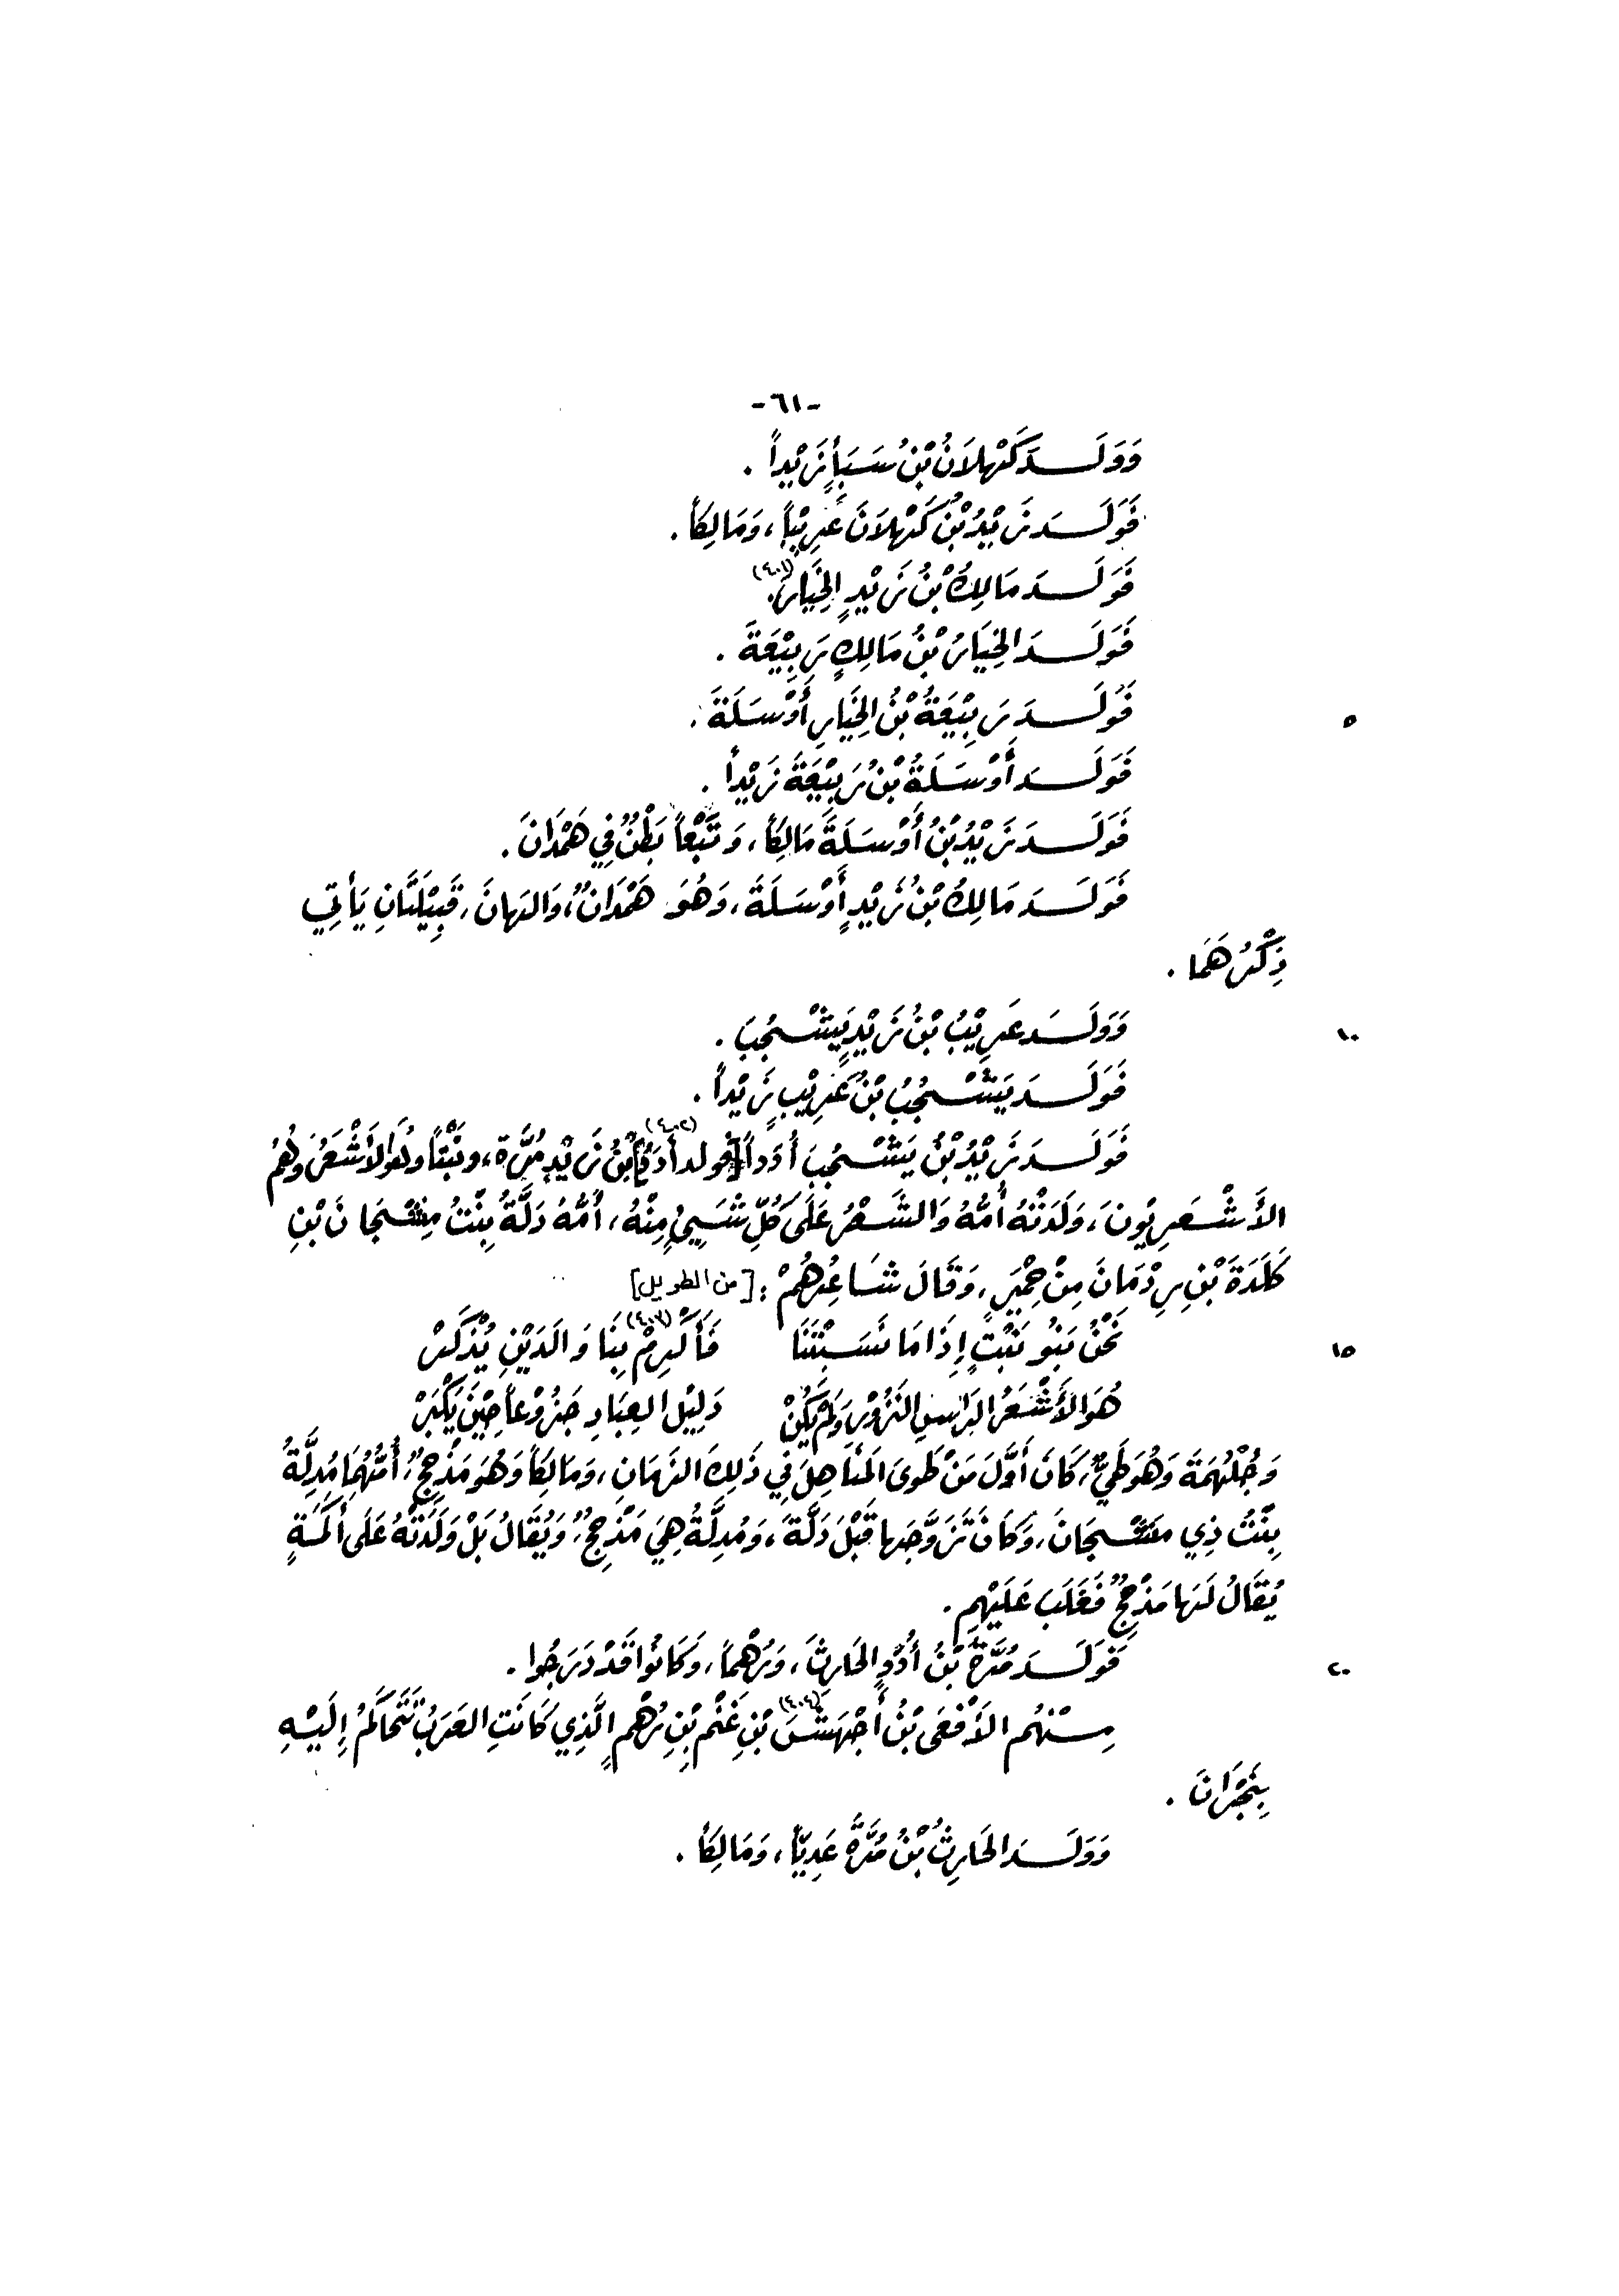 -٦١-
وَوَلَــدَ كَهْلاَنُ بْنُ سَبَأٍ زَيْداً .
فَوَلَــدَ زَيْدُ بْنُ كَهْلاَنَ عَرِيْباً ، وَمَالِكاً .
فَوَلَــدَ مَالِكُ بْنُ زَيْدٍ الخِيَارَ (٤٠١) .
فَوَلَــدَ الخِيَارُ بْنُ مَالِكٍ رَبِيْعَةَ .
فَوَلَــدَ رَبِيْعَةُ بْنُ الخِيَارِ أَوْسَلَةَ . ٥
فَوَلَــدَ أَوْسَلَةُ بْنُ رَبِيْعَةَ زَيْداً .
فَوَلَــدَ زَيْدُ بْنُ أَوْسَلَةَ مَالِكاً ، وَتَبْعاً بَطْنٌ فِي هَمْدَانَ .
فَوَلَــدَ مَالِكُ بْنُ زَيْدٍ أَوْسَلَةَ ، وَهُوَ هَمْدَانُ ، وَالهانَ ، قَبِيْلَتَانِ يَأتِي
ذِكْرُهَمَا .
وَوَلَــدَ عَرِيْبُ بْنُ زَيْدٍ يَشْــجُبَ . ١٠
فَوَلَــدَ يَشْــجُبُ بْنُ عَرِيْبٍ زَيْداً .
فَوَلَــدَ زَيْدُ بْنُ يَشْــجُبَ أُدَداً [فولد أُدَدُ] (٤٠٢) بْنُ زَيْدٍ مُرَّة ، ونَبْتاً وهُوَ الأَشْعَرُ وَهُمُ
الأَشْــعَرِيُونَ ، وَلَدَتْهُ أُمُّهُ وَالشَّــعْرُ عَلَى كُلِّ شَيِيءٍ مِنْهُ ، أُمُّهُ دَلَّةُ بِنْتُ مِنْشَــجَانَ بْنِ
كَلَدَةَ بْنِ رِدْمَانَ مِنْ حِمْيَرٍ ، وَقَالَ شَاعِرُهُمْ : [من الطويل]
نَحْنُ بَنُو نَبْتٍ إِذَا مَا نَسَبْتَنَا فَأَكْرِمْ (٤٠٣) بِنَا وَالَدَيْنِ يُذْكَرْ ١٥
هُوَ الأَشْعَرُ الرَاسِ النَزُوْرِ وَلَمْ يَكُنْ دَلِيْل العِبَادِ جَزُوْعاً حِيْنَ يَكْبَرْ
وَجُلْهُمَةَ وَهُوَ طَيٌّ ، كَانَ أَوَّلَ مَنْ طَوىَ المَنَاهِلَ فِي ذَلِكَ الزَمَانِ ، وَمَالِكاً وَهُوَ مَذْحِجٌ ، أُمُّهُمَا مُدِلَّةُ
بِنْتُ ذِي منشَــجَانَ ، وَكَانَ تَزَوَّجَها قَبْلَ دَلَّةَ ، وَمُدِلَّةُ هِيَ مَذْحِجٌ ، وَيُقَالُ بَلْ وَلَدَتْهُ عَلَى أَكَمَةٍ
يُقَالُ لَهَا مَذْحِجٌ فَغَلَبَ عَلَيْهِم .
فَوَلَــدَ مُرَّةُ بْنُ أُدَدٍ الحَارِثَ ، وَرُهْماً ، وَكَانُوا قَدْ دَرَجُوا . ٢٠
مِــنْهُم الأَفْعَى بْنُ أَجْهَشَ (٤٠٤) بْنِ غَنْمِ بْنِ رُهْمٍ الَّذِي كَانَتِ العَرَبُ تَتَحَاكَمُ إِلَيْهِ
بِنَجْرَانَ .
وَوَلَــدَ الحَارِثُ بْنُ مُرَّةَ عَدِيّاً ، وَمَالِكاً .